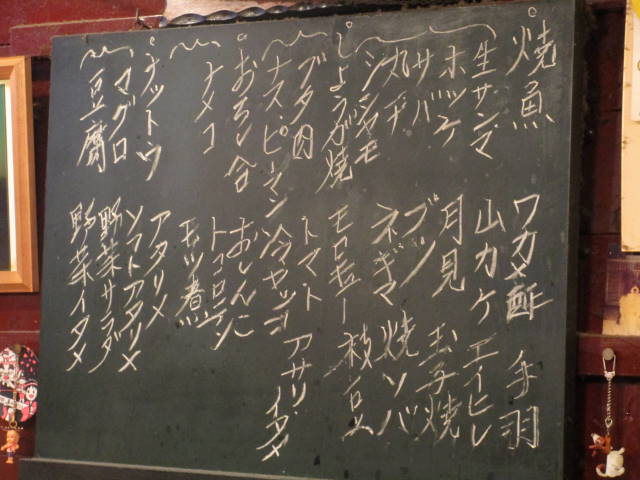 ・焼魚
生サンマ
ホッケ
サバ
丸干
シシャモ
・しょうが焼
ブタ肉
ナス・ピーマン
・おろし合
ナメコ
・ナットウ
マグロ
豆腐
ワカメ酢
山カケ
月見
ブツ
ネギマ
モロキュー
トマト
冷ヤッコ
おしんこ
トコロテン
モツ煮
アタリメ
ソフトアタリメ
野菜サラダ
野菜イタメ
手羽
エイヒレ
玉子焼
焼ソバ
枝豆
アサリ・イタメ